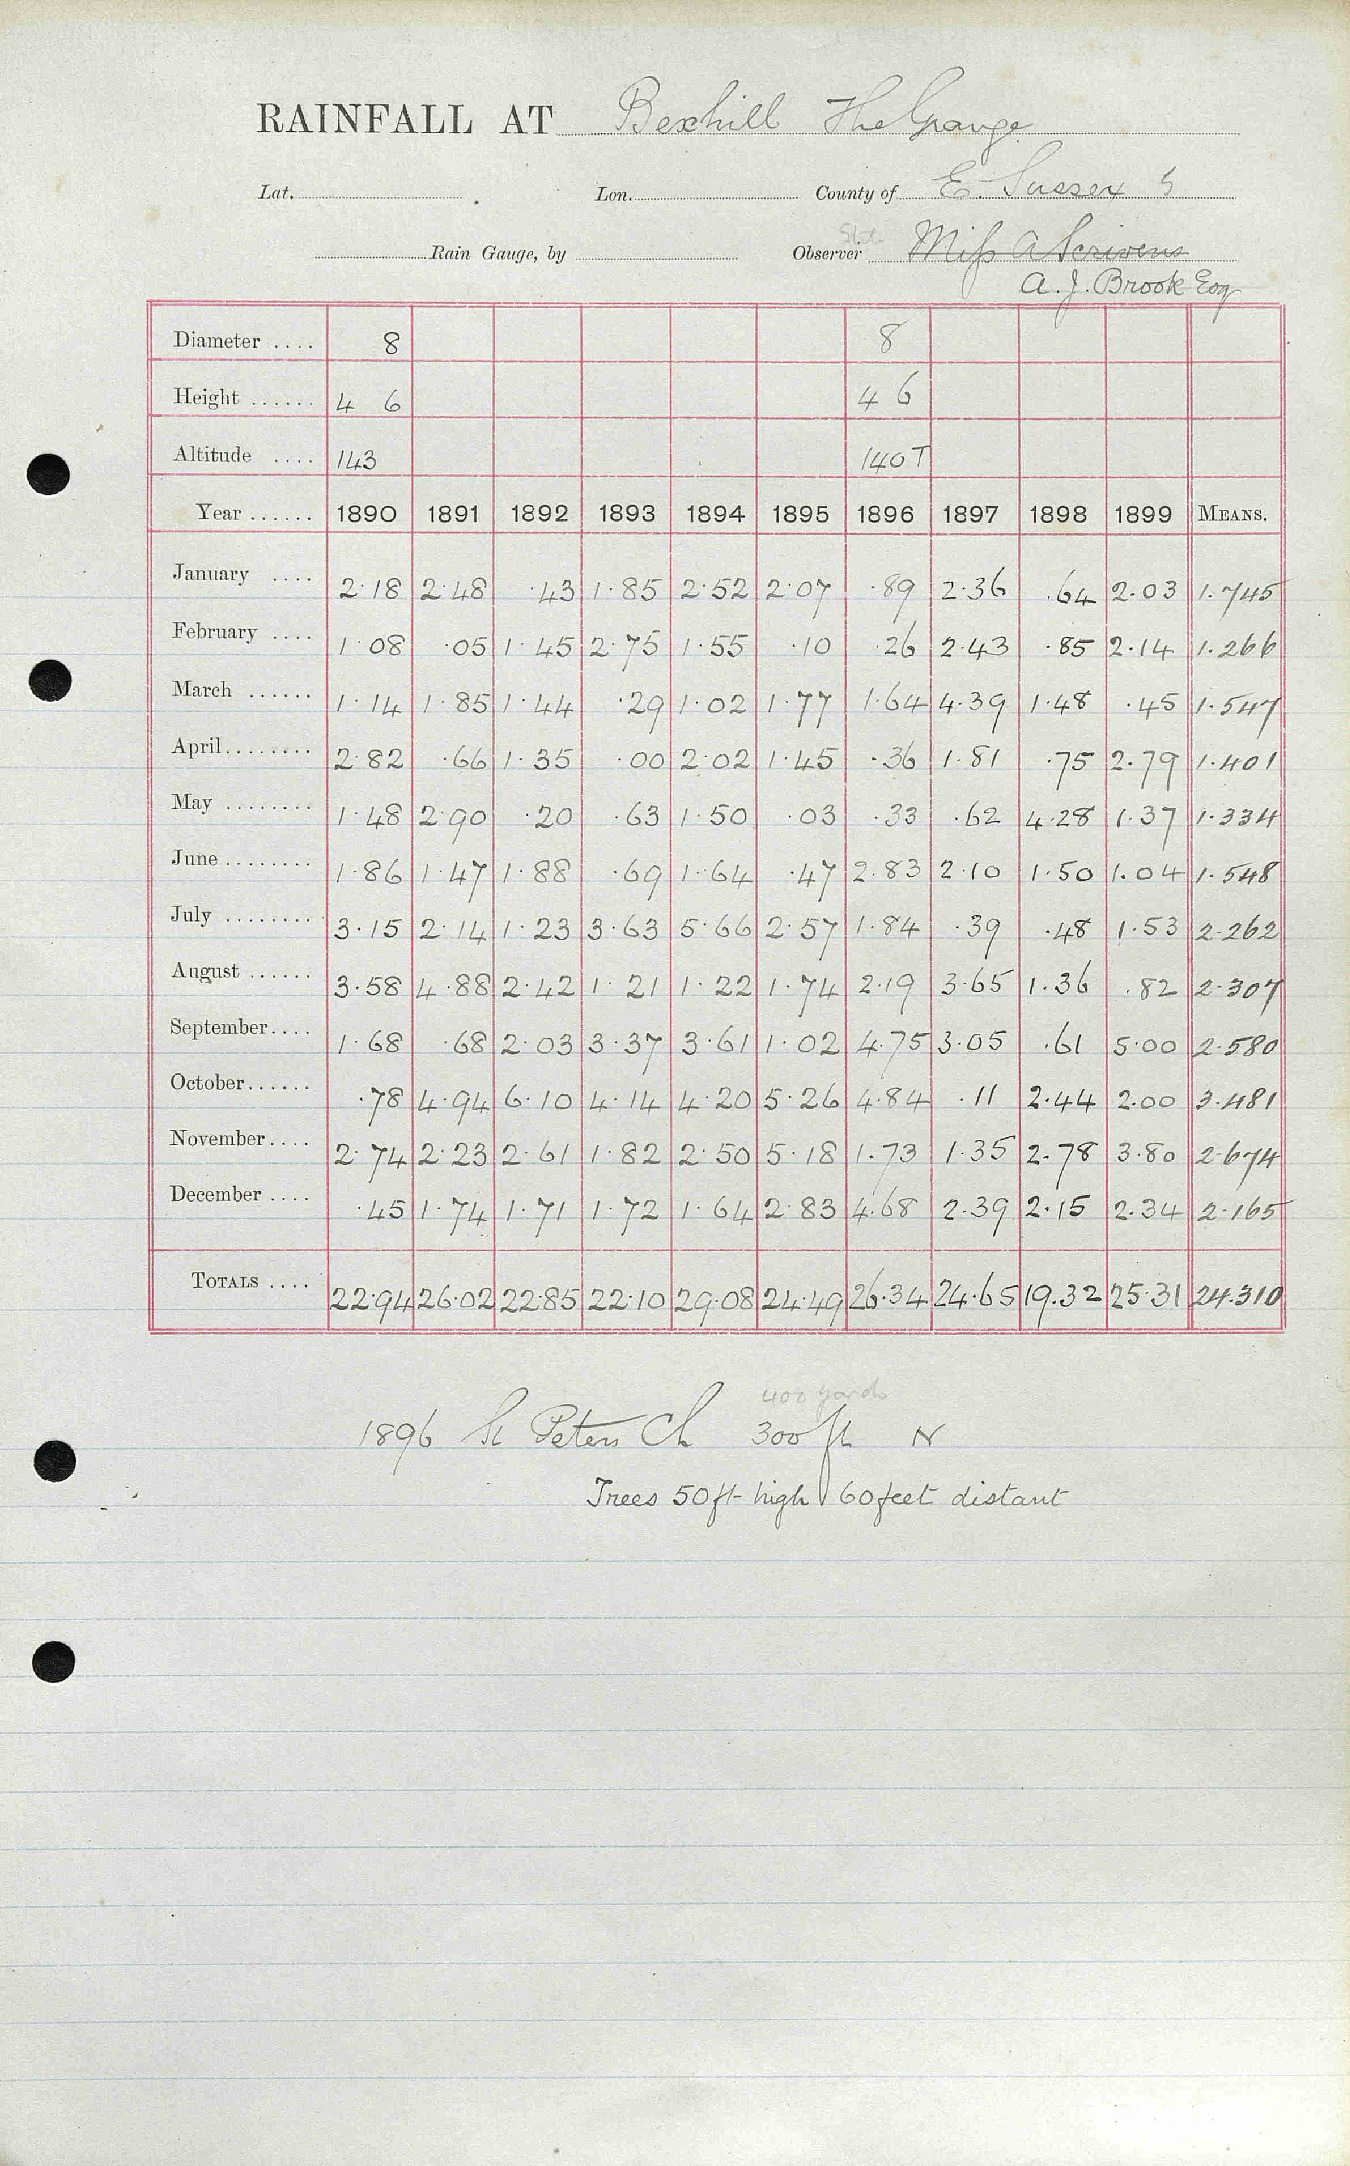 RAINFALL AT Bexhill The Grange
Lat. Lon. County of E Sussex 5
Rain Gauge, by Observer Miss A Scrivens
A. J. Brook Esq
Diameter .... 8 8
Height ...... 4 6 4 6
Altitude .... 143 140 T
Year ...... 1890 1891 1892 1893 1894 1895 1896 1897 1898 1899 MEANS.
January .... 2·18 2·48 ·43 1·85 2·52 2·07 ·89 2·36 ·64 2·03 1·745
February .... 1·08 ·05 1·45 2·75 1·55 ·10 ·26 2·43 ·85 2·14 1·266
March ...... 1·14 1·85 1·44 ·29 1·02 1·77 1·64 4·39 1·48 ·45 1·547
April ........ 2·82 ·66 1·35 ·00 2·02 1·45 ·36 1·81 ·75 2·79 1·401
May ........ 1·48 2·90 ·20 ·63 1·50 ·03 ·33 ·62 4·28 1·37 1·334
June ........ 1·86 1·47 1·88 ·69 1·64 ·47 2·83 2·10 1·50 1·04 1·548
July ........ 3·15 2·14 1·23 3·63 5·66 2·57 1·84 ·39 ·48 1·53 2·262
August ...... 3·58 4·88 2·42 1·21 1·22 1·74 2·19 3·65 1·36 ·82 2·307
September .... 1·68 ·68 2·03 3·37 3·61 1·02 4·75 3·05 ·61 5·00 2·580
October ...... ·78 4·94 6·10 4·14 4·20 5·26 4·84 ·11 2·44 2·00 3·481
November .... 2·74 2·23 2·61 1·82 2·50 5·18 1·73 1·35 2·78 3·80 2·674
December .... ·45 1·74 1·71 1·72 1·64 2·83 4·68 2·39 2·15 2·34 2·165
TOTALS .... 22·94 26·02 22·85 22·10 29·08 24·49 26·34 24·65 19·32 25·31 24·310
400 yards
1896 St Peters Ch 300 ft N
Trees 50 ft high 60 feet distant